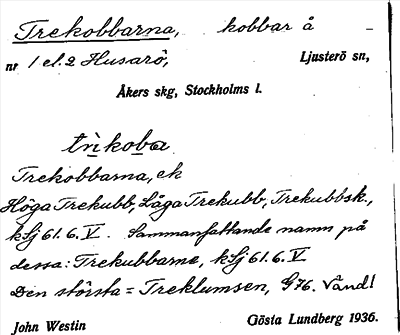 Trekobbarna, kobbar å –
nr 1 el. 2 Husarö, Ljusterö sn,
Åkers skg, Stockholms l.
trìkoba
Trekobbarna, ek
Höga Trekubb, Låga Trekubb, Trekubbsk.,
kSj 61. 6. V. Sammanfattande namn på
dessa: Trekubbarne, kSj 61. 6. V
Den största = Treklumsen, G76. Vänd!
John Westin Gösta Lundberg 1936.